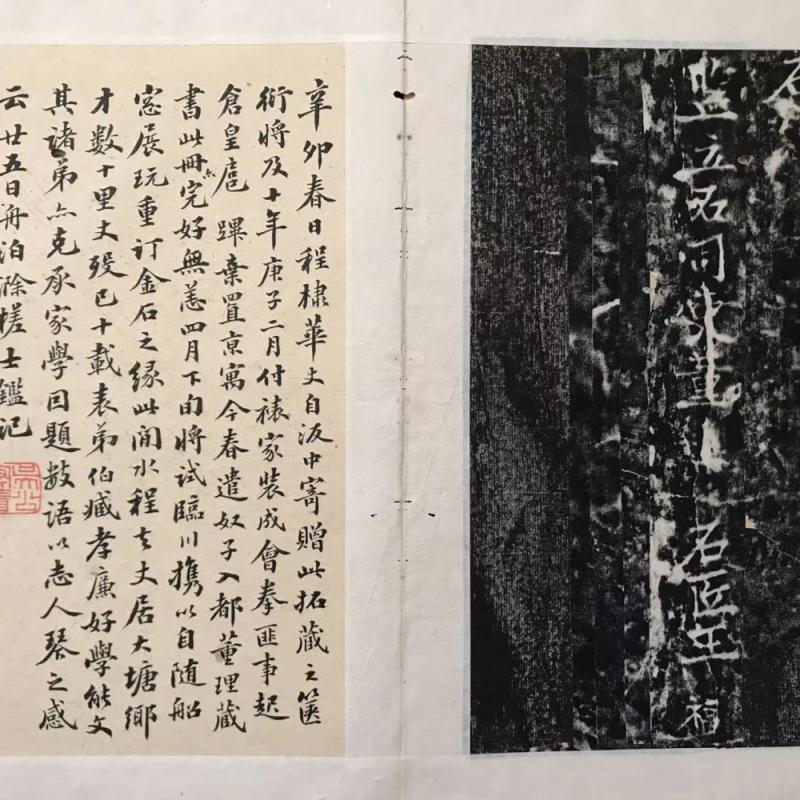 石匠王福
辛卯春日程棣華丈自汳中寄贈此拓藏之篋
衍將及十年庚子二月付裱家裝成會拳匪事起
倉皇扈蹕棄置京寓今春遣奴子入都董理藏
書此冊亦完好無恙四月下旬將試臨川攜以自隨船
窓展玩重訂金石之緣此間水程去丈居大塘鄉
才數十里丈歿已十載表弟伯臧孝廉好學能文
其諸弟亦克承家學因題數語以志人琴之感
云廿五日舟泊滁槎士鑑記